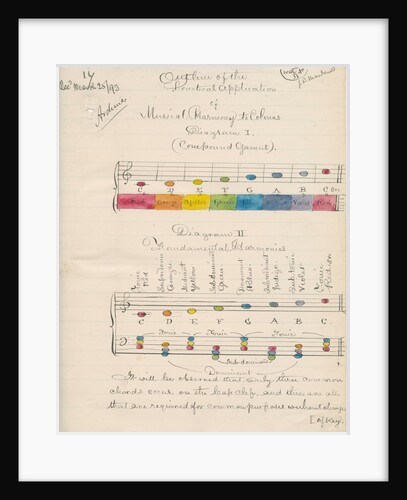 14
Mark 25/93
Outline of the
Practical Application
of
Musical Harmony to Colours
Diagram I.
(Compound Gamut).
C D E F G A B C
Red Orange Yellow Green Blue Indigo Violet Red
Diagram II.
Fundamental Harmonies
Tonic Red
Supertonic Orange
Mediant Yellow
Subdominant Green
Dominant Blue
Submediant Indigo
Violet
Tonic Red
C D E F G A B C
Tonic Tonic Tonic
Subdominant
Dominant
It will be observed that only three common
chords occur on the bass clef, and these are all
that are required for common purposes without change
[of Key.